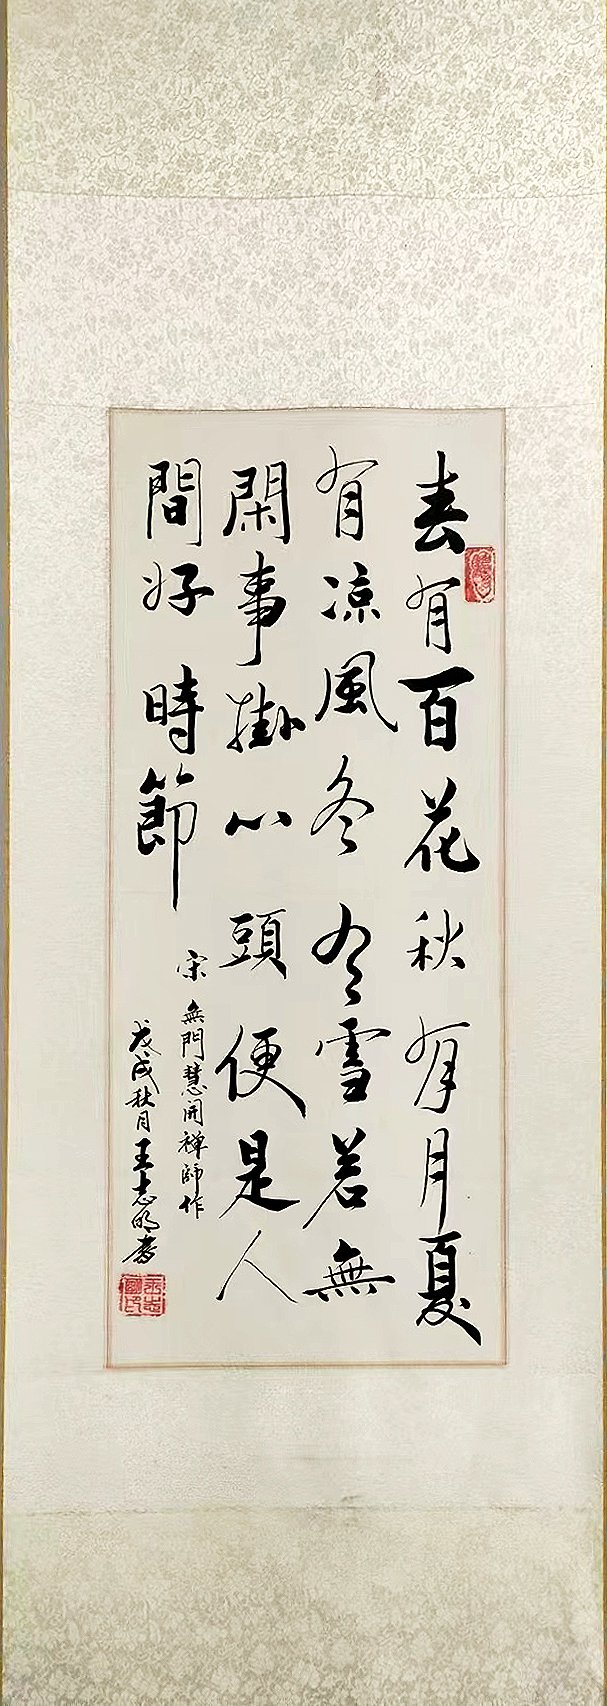 春有百花秋有月夏
有凉風冬有雪若無
閑事掛心頭便是人
間好時節
宋 無門慧開禅師作
戊戌秋月王志明書